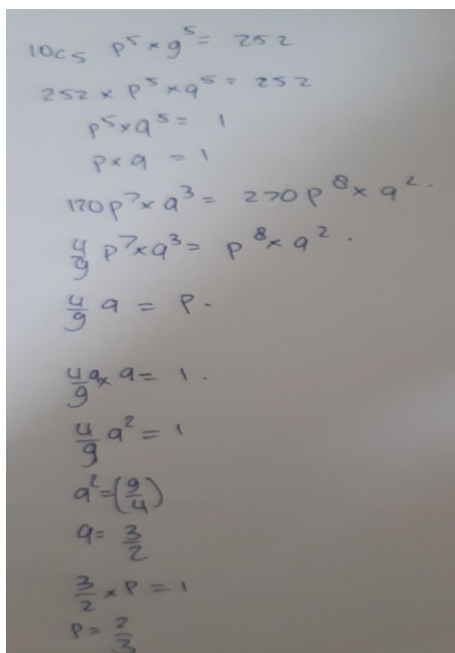 10c5 p⁵ × q⁵ = 252
252 × p⁵ × q⁵ = 252
p⁵ × q⁵ = 1
p × q = 1
120p⁷ × q³ = 270p⁸ × q².
4/9 p⁷ × q³ = p⁸ × q².
4/9 q = p.
4/9 q × q = 1.
4/9 q² = 1
q² = (9/4)
q = 3/2
3/2 × p = 1
p = 2/3